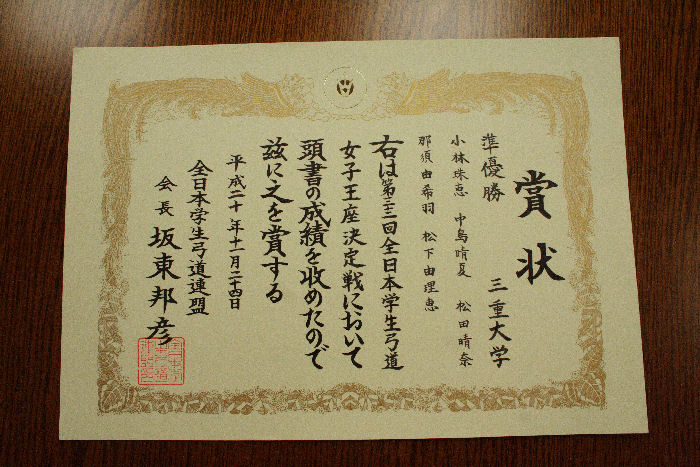 賞状
準優勝 三重大学
小林珠恵 中島晴夏 松田晴奈
那須由希羽 松下由理恵
右は第三十二回全日本学生弓道
女子王座決定戦において
頭書の成績を収めたので
茲に之を賞する
平成二十年十一月二十四日
全日本学生弓道連盟
会長 坂東邦彦